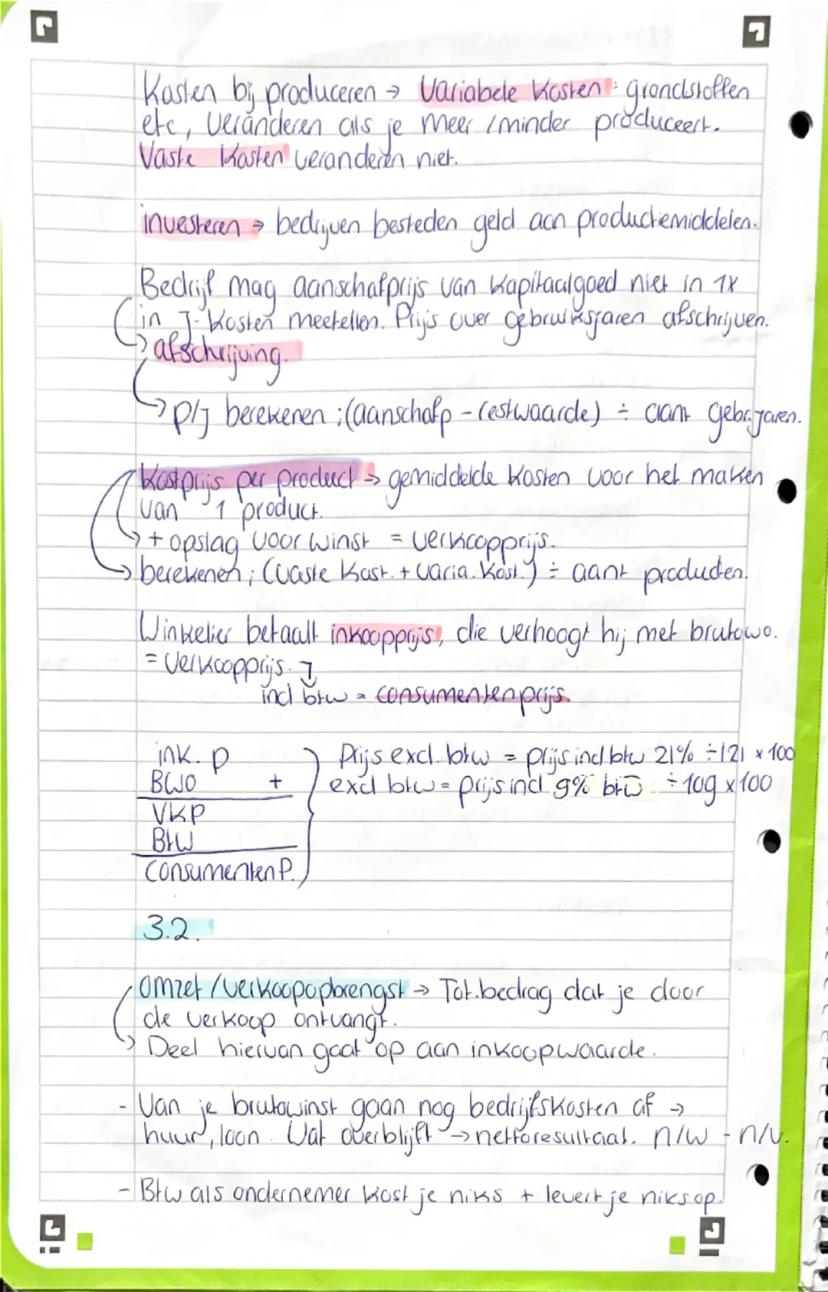 Kosten bij produceren → Variabele kosten: grondstoffen
etc, veranderen als je meer/minder produceert.
Vaste kosten veranderen niet.
investeren → bedrijven besteden geld aan productiemiddelen.
Bedrijf mag aanschafprijs van kapitaalgoed niet in 1x
in J-kosten meetellen. Prijs over gebruiksjaren afschrijven.
→ afschrijving.
→ p/J berekenen ; (aanschafp - restwaarde) ÷ aant gebr.jaren.
Kostprijs per product → gemiddelde kosten voor het maken
van 1 product.
→ + opslag voor winst = verkoopprijs.
→ berekenen ; (vaste kost. + varia. kost.) ÷ aant producten.
Winkelier betaalt inkoopprijs, die verhoogt hij met brutowo.
= verkoopprijs.
incl btw = consumentenprijs.
ink. p
BWO +
VKP
BtW
Consumenten P.
Prijs excl. btw = prijs incl btw 21% ÷ 121 x 100
excl btw = prijs incl 9% btw ÷ 109 x 100
3.2.
omzet / verkoopopbrengst → Tot.bedrag dat je door
de verkoop ontvangt.
→ Deel hiervan gaat op aan inkoopwaarde.
- Van je brutowinst gaan nog bedrijfskosten af →
huur, loon. Wat overblijft → nettoresultaat. n/w - n/v.
- Btw als ondernemer kost je niks + levert je niks op.